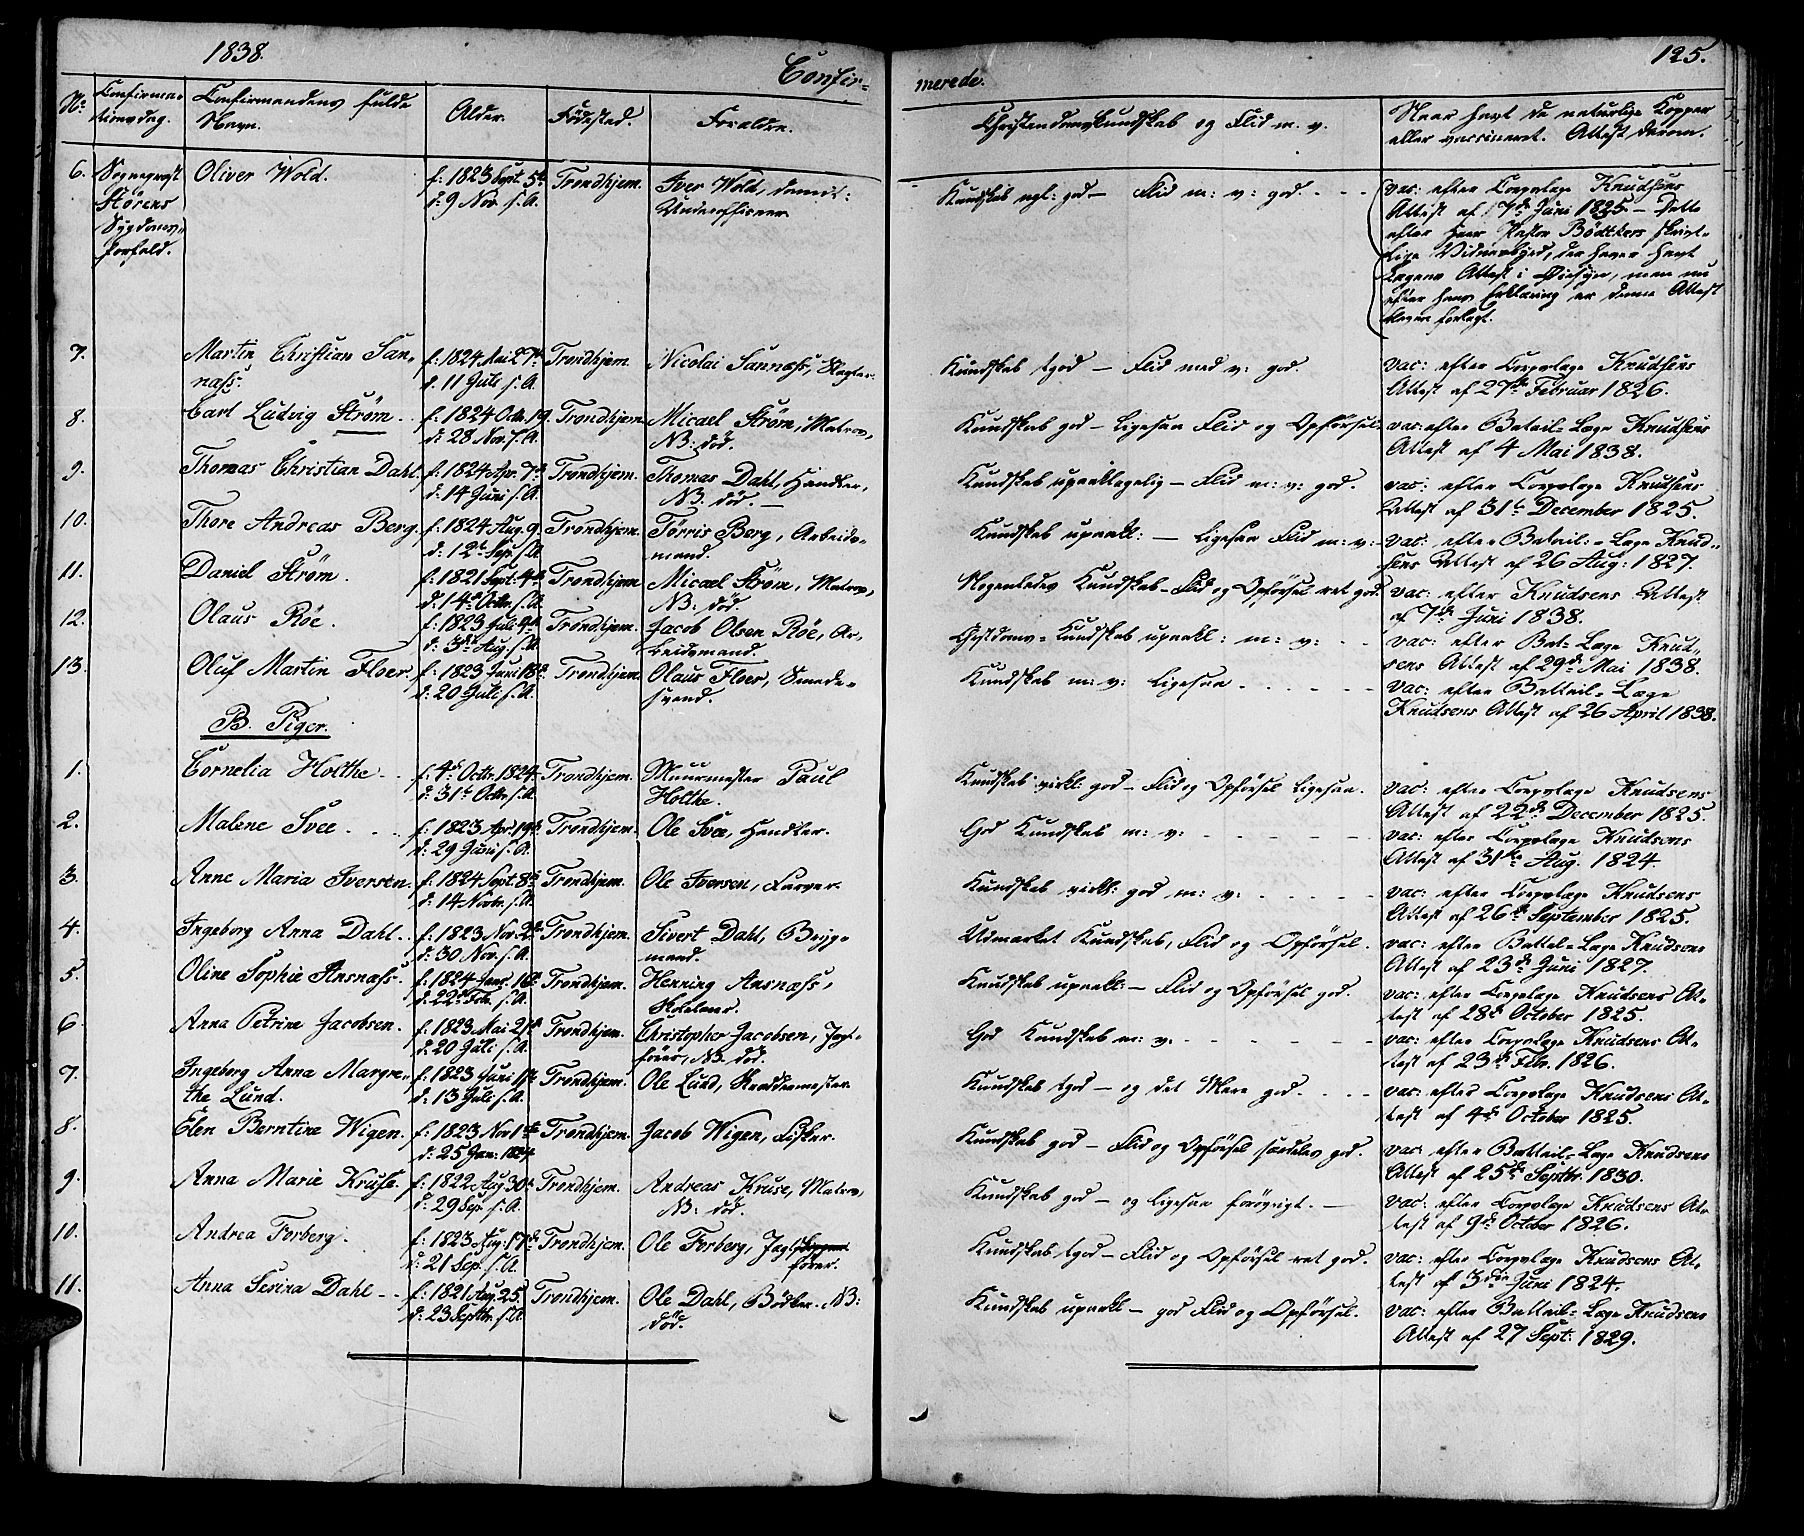 1838.
125.
Confir=
merede.
No
Confirma=
tionsdag.
Confirmandens fulde
Navn.
Alder.
Fødested.
Forældre.
Christendomskundskab og Flid m. v.
Naar havt de naturlige Kopper
eller vaccineret. Attest derom.
6.
Sognepræst
Størens
Sygdoms=
forfald.
Oliver Wold.
f: 1823 Sept. 5te
d: 9 Nov. s. A.
Trondhjem.
Iver Wold,
Underofficeer
Kundskab ngl: god — Flid m: v: god.
vac: efter Corpslæge Knudsens
Attest af 17de Juni 1825 — Dette
efter Herr Pastor Bødtkers skrivt=
lige Vidnesbyrd, der haver havt
Lægens Attest i Øiesyn, men nu
efter hans Erklæring er denne Attest
bleven forlagt.
7.
Martin Christian San=
næss.
f: 1824 Mai 27de
d. 11 Juli s. A.
Trondhjem.
Nicolai Sannæss, Slagter.
Kundskab tgod — Flid med v: god.
vac: efter Corpslæge Knudsens
Attest af 27de Februar 1826.
8.
Carl Ludvig Strøm.
f: 1824 Octr. 19.
d: 28 Nov. s. A.
Trondhjem
Micael Strøm, Matros,
NB: død.
Kundskab god — ligesaa Flid og Opførsel.
vac: efter Batail=Læge Knudsens
Attest af 4 Mai 1838.
9.
Thomas Christian Dahl.
f: 1824 Apr. 7de
d: 14 Juni s. A.
Trondhjem.
Thomas Dahl, Handler,
NB: død. —
Kundskab upaaklagelig — Flid m: v: god.
vac: efter Corpslæge Knudsens
Attest af 31te December 1825.
10.
Thore Andreas Berg.
f: 1824 Aug. 9.
d: 12te Sep. s. A.
Trondhjem.
Tørris Berg, Arbeids=
mand.
Kundskab upaakl: — ligesaa Flid m: v:
vac: efter Batail:=Læge Knud=
sens Attest af 26 Aug: 1827.
11.
Daniel Strøm.
f: 1821 Sept: 4de
d. 14de Octr. s. A.
Trondhjem
Micael Strøm, Matros,
NB: død.
Nogenledes Kundskab — Flid og Opførsel ret god.
vac: efter Knudsens Attest
af 7de Juni 1838.
12.
Olaus Röe.
f: 1823 Juli 4de
d: 3de Aug. s. A.
Trondhjem.
Jacob Olsen Röe, Ar=
beidsmand.
Christdoms=Kundskab upaakl: m: v:
vac: efter Bat=Læge Knut=
sens Attest af 29de Mai 1838.
13.
Oluf Martin Floer.
f: 1823 Juni 18de
d: 20 Juli s. A.
Trondhjem.
Olaus Floer, Smede=
svend.
Kundskab m: v: ligesaa
vac: efter Battail=Læge
Knudsens Attest af 26 April 1838.
B. Piger.
1.
Cornelia Holthe
f: 4de Octr. 1824
d: 31te Octr. s. A.
Trondhjem.
Muurmester Paul
Holthe.
Kundskab virkl: god — Flid og Opførsel ligesaa.
vac: efter Corpslæge Knudsens
Attest af 22de December 1825.
2.
Malene Svee.
f: 1823 Apr. 19de
d: 29 Juni s. A.
Trondhjem.
Ole Svee, Handler.
God Kundskab m: v:
vac: efter Corpslæge Knudsens
Attest af 31te Aug. 1824.
3.
Anne Maria Iversen.
f: 1824 Sept. 8de
d: 14 Novbr. s. A.
Trondhjem.
Ole Iversen, Farver.
Kundskab virkl: god m: v:
vac: efter Corpslæge Knudsens
Attest af 26de September 1825.
4.
Ingeborg Anna Dahl.
f: 1823 Nov. 2de
d: 30 Nov. s. A.
Trondhjem.
Sivert Dahl, Bryg=
mand.
Udmærket Kundskab, Flid og Opførsel.
vac: efter Battel=Læge Knudsens
Attest af 23de Juni 1827.
5.
Oline Sophie Ansnæss.
f: 1824 Janr. 16de
d: 22de Feb. s. A.
Trondhjem.
Henning Ansnæss,
Kundskab upaakl: — Flid og Opførsel god.
vac: efter Corpslæge Knudsens At=
test af 28de October 1825.
6.
Anna Petrine Jacobsen.
f: 1823 Mai 21de
d. 20 Juli s. A.
Trondhjem.
Christopher Jacobsen, Jagt=
fører, NB. død.
God Kundskab m: v:
vac: efter Corpslæge Knudsens At=
test af 23de Feb. 1826.
7.
Ingeborg Anna Margre=
the Lund.
f: 1823 Juni 1ste
d: 13 Juli s. A.
Trondhjem.
Ole Lund, Skreddermester.
Kundskab tgod — og det Mere god.
vac: efter Corpslæge Knudsens At=
test af 4de October 1825.
8.
Elen Berntine Wigen.
f: 1823 Nov 1ste
d: 25 Jan: 1824
Trondhjem.
Jacob Wigen, Fisker.
Kundskab god — Flid og Opførsel særdeles god.
vac: efter Battail=Læge Knudsens
Attest af 25de Septbr. 1830.
9.
Anna Marie Kruse.
f: 1822 Aug 30te
d: 29 Sep. s. A.
Trondhjem.
Andreas Kruse, Matros,
NB: død.
Kundskab god — og ligesaa forøvrigt. —
vac: efter Corpslæge Knudsens At=
test af 9de October 1826.
10.
Andrea Forberg.
f: 1823 Aug: 17de
d: 21 Sep. s. A.
Trondhjem.
Ole Forberg, Jagt
fører.
Kundskab tgod — Flid og Opførsel ret god.
vac: efter Corpslæge Knudsens At=
test af 3die Juni 1824.
11.
Anna Sesina Dahl
f: 1821 Aug. 25.
d: 23 Septbr. s. A.
Trondhjem.
Ole Dahl, Bødker. NB:
død.
Kundskab upaakl — god Flid og Opførsel.
vac: efter Battail=Læge Knudsens
Attest af 27 Sept: 1829.